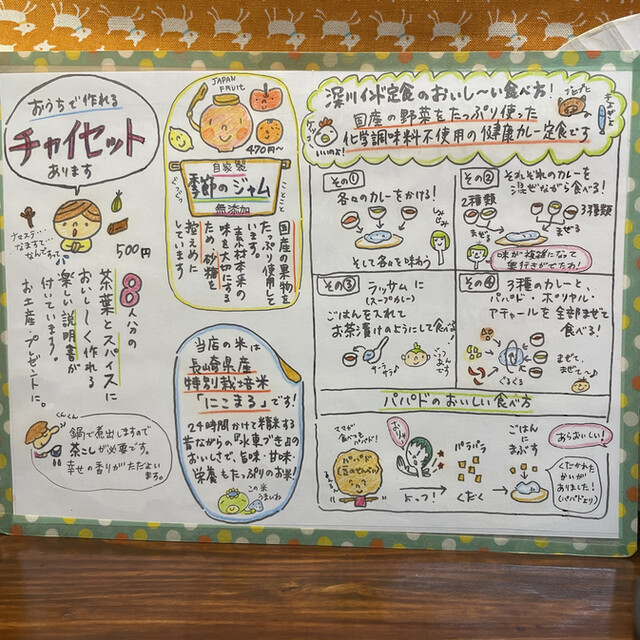 おうちで作れる
チャイセット
あります
ナマステ…
なますて…
なんです♪
500円
8人分の
茶葉とスパイスに
おいし〜く作れる
楽しい説明書が
付いています。
お土産、プレゼントに。
くんくん
鍋で煮出しますので
茶こしが必要です。
幸せの香りがただよい
ます。
JAPAN
FRUIT
470円〜
自家製
季節のジャム
無添加
ことこと
国産の果物を
たっぷり使用して
います。
素材本来の
味を大切にする
ため、砂糖を
控えめに
しています
当店の米は
長崎県産
特別栽培米
「にこまる」です!
24時間かけて精米する
昔ながらの『水車づき』の
おいしさで、旨味・甘味・
栄養もたっぷりのお米!
この米
うまいね
深川インド定食のおいし〜い食べ方!
国産の野菜をたっぷり使った
化学調味料不使用の健康カレー定食どす
いいのよ!
その①
各々のカレーをかける!
そして各々を味わう
その②
それぞれのカレーを
混ぜながら食べる!
2種類
3種類
まぜる
まぜる
味が複雑になって
奥行きがでたわ!
その③
ラッサムに
(スープカレー)
ごはんを入れて
お茶漬けのようにして食べる!
サラサラ♪
その④
3種のカレーと、
パパド・ポリヤル・
アチャールを全部まぜて
食べる!
ぐるぐる
まぜて、
まぜて〜♪
パパドのおいしい食べ方
ママが
食べてもパパド!
パパド
(豆のせんべい)
よっつ!
くだく
パラパラ
ごはんに
まぶす
おらおいしい!
くだかれた
かいが
ありました!
(パパドより)